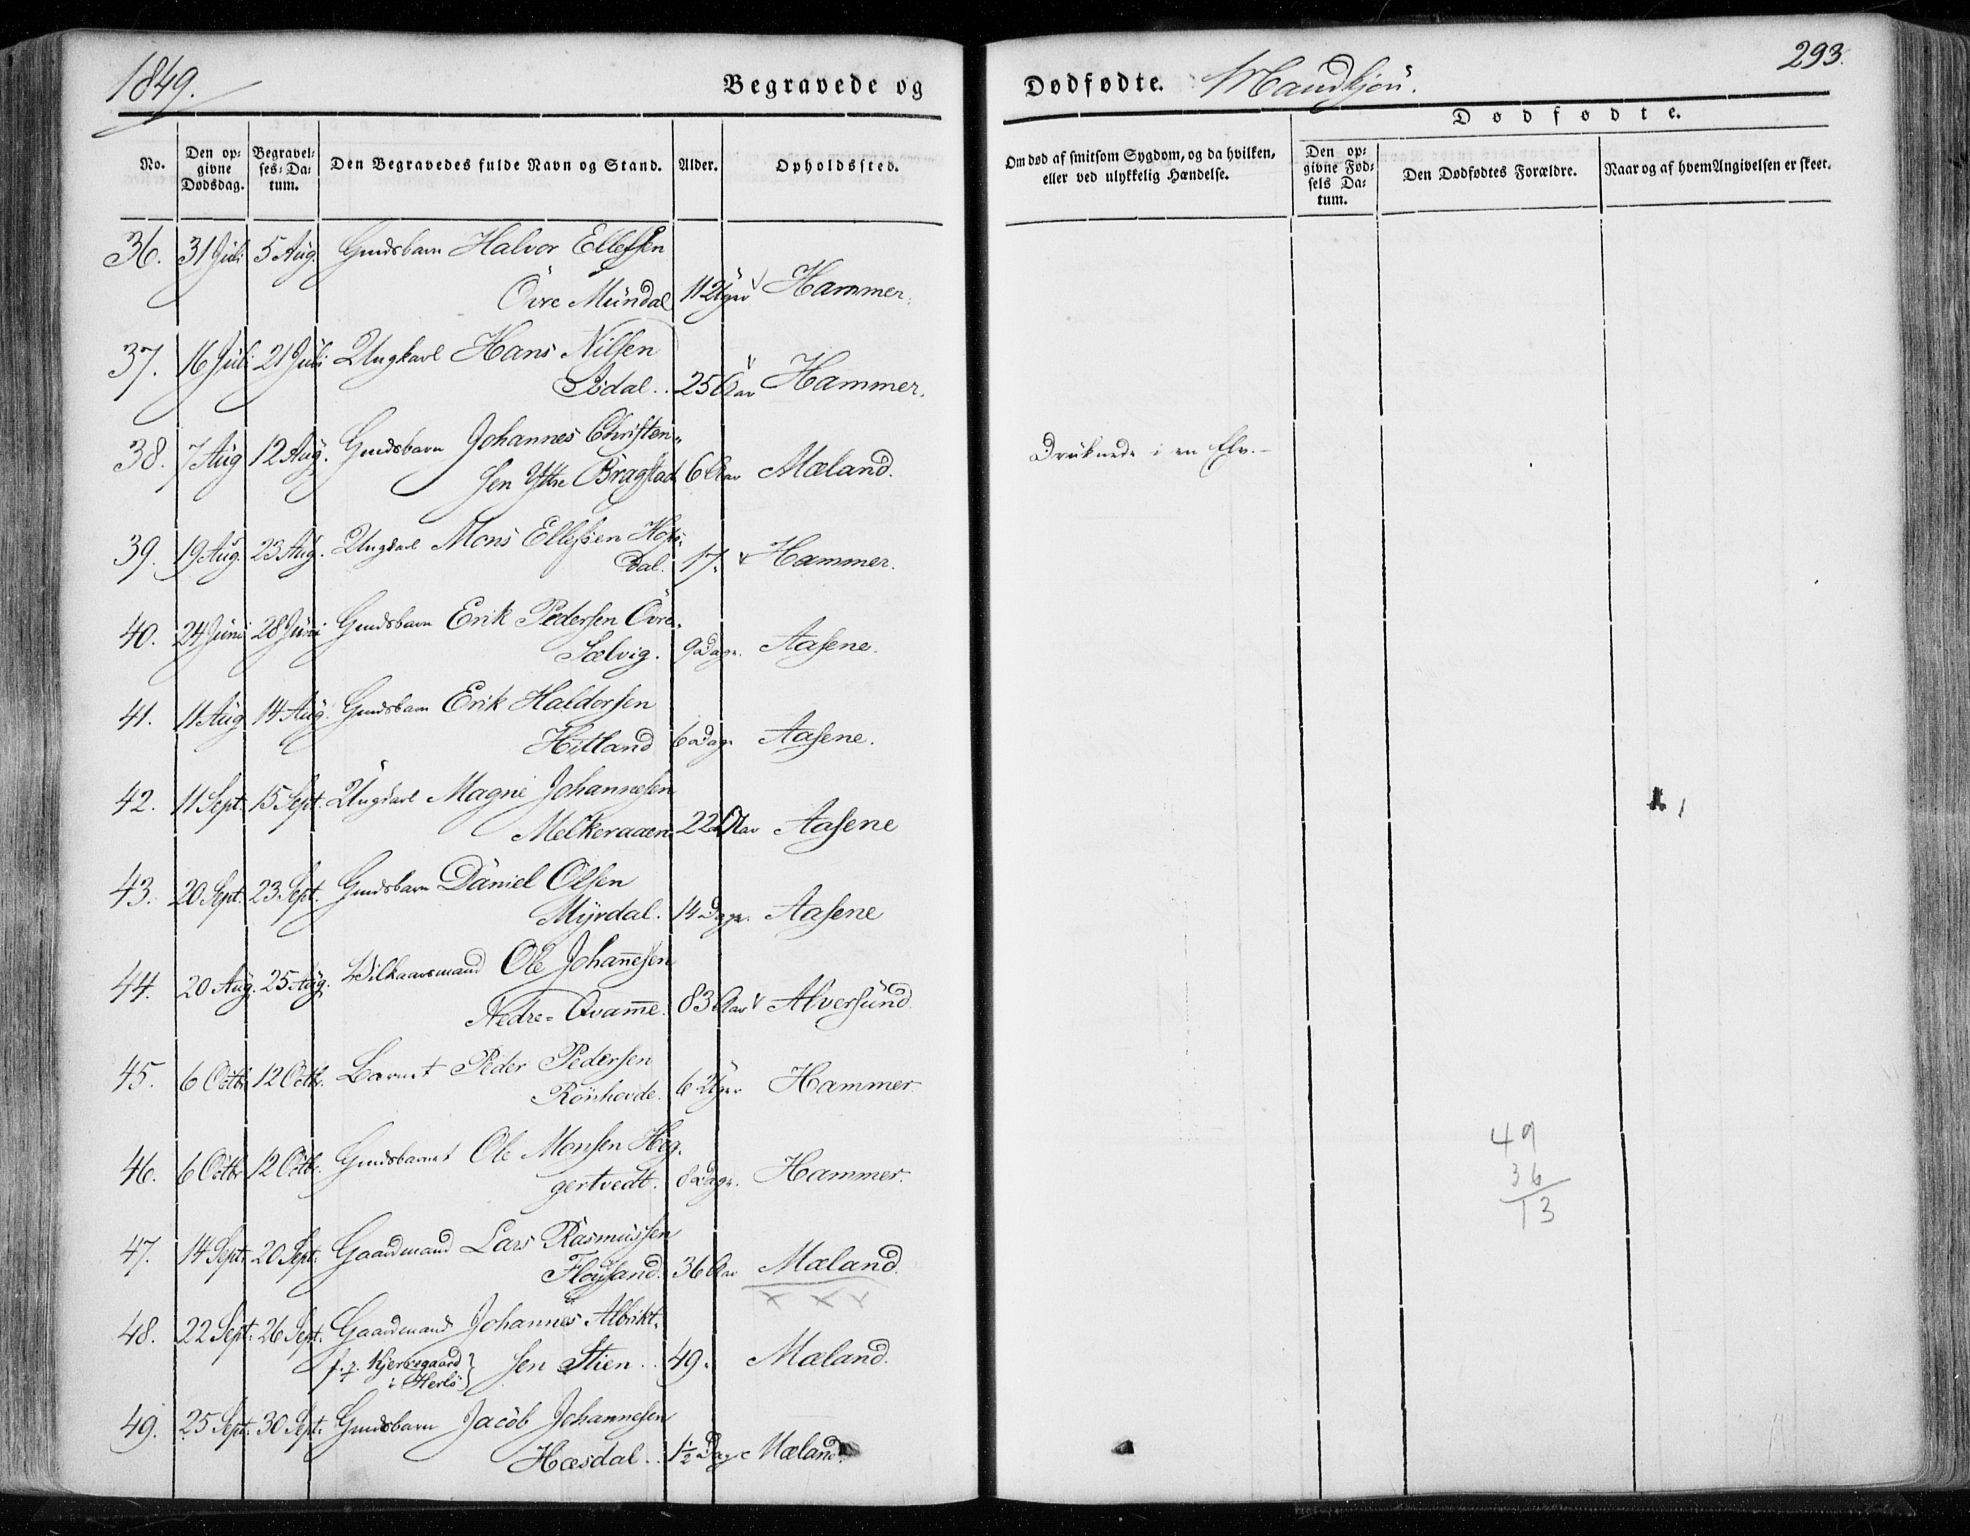 1849.
Begravede og
Dødfødte. Mandkjön.
293.
Dødfødte.
No.
Den opgivne Dødsdag.
Begravelses-Datum.
Den Begravedes fulde Navn og Stand.
Alder.
Opholdssted.
Om død af smitsom Sygdom, og da hvilken, eller ved ulykkelig Hændelse.
Den opgivne Fødsels Datum.
Den Dødfødtes Forældre.
Naar og af hvem Angivelsen er skeet.
36. 31 Juli 5 Aug. Gmdsbarn Halvor Ellefsen
Övre Mundal 11 Uger Hammer.
37. 16 Juli 21 Juli Ungkarl Hans Nilsen
Isdal. 25 Aar Hammer.
38. 7 Aug 12 Aug. Gmdsbarn Johannes Christen-
sen Ytre Bragstad 6 Aar Mæland. Druknede i en Elv.
39. 19 Aug. 23 Aug. Ungkarl Mons Ellefsen
dal. 17. Hammer.
40. 24 Juni 28 Juni Gmdsbarn Erik Pedersen Övre-
Sælvig. 9 Dage. Aasene.
41. 11 Aug 14 Aug. Gmdsbarn Erik Haldorsen
Hitland 6 Dage Aasene.
42. 11 Sept. 15 Sept. Ungkarl Magne Johannesen
Melkeraaen 22 Aar Aasene
43. 20 Sept. 23 Sept. Gmdsbarn Daniel Olsen
Myrdal. 14 Dage. Aasene
44. 20 Aug. 25 Aug. Vilkaarsmand Ole Johannesen
Nedre-Qvamme. 83 Aar Alversund.
45. 6 Octbr 12 Octbr. Barnet Peder Pedersen
Rönhovde. 6 Uger Hammer
46. 6 Octbr 12 Octbr. Gmdsbarnet Ole Monsen Heg-
gertvedt. 8 Dage. Hammer.
49
36
13
47. 14 Sept. 20 Sept. Gaardmand Lars Rasmussen
Flöysand. 36 Aar Mæland.
x x x
48. 22 Sept. 26 Sept. Gaardmand Johannes Albrikt-
f. p. Kjerregaard i Herlö } sen Stien. 49. Mæland.
49. 25 Sept. 30 Sept. Gmdsbarn Jacob Johannesen
Hæsdal. 1½ Dage Mæland.